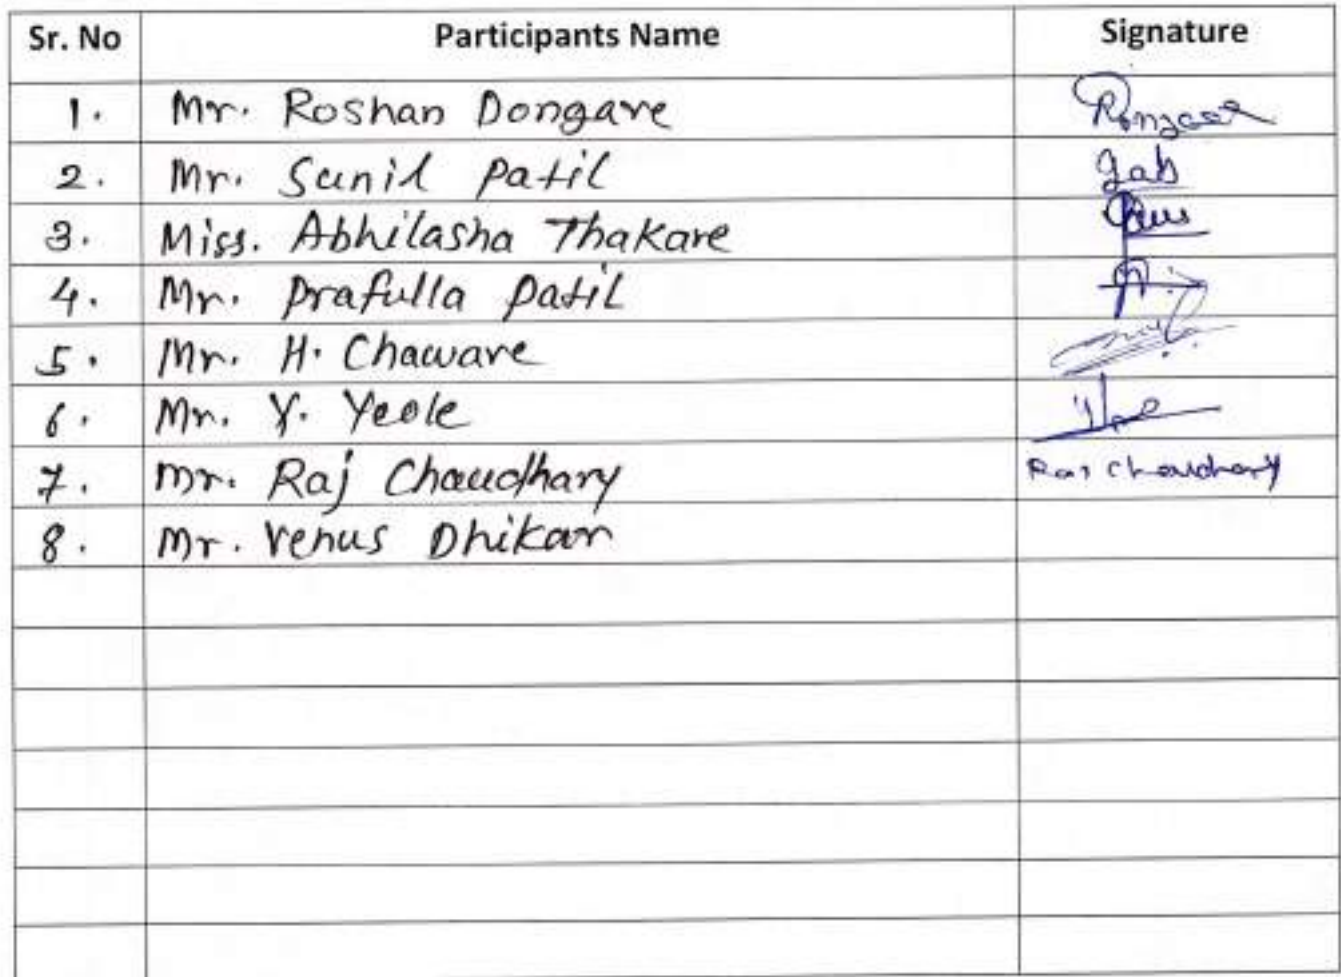 Sr. No Participants Name Signature
1. Mr. Roshan Dongare
2. Mr. Sunil Patil
3. Miss. Abhilasha Thakare
4. Mr. Prafulla Patil
5. Mr. H. Chaware
6. Mr. Y. Yeole
7. Mr. Raj Chaudhary Raj Chaudhary
8. Mr. Venus Dhikar